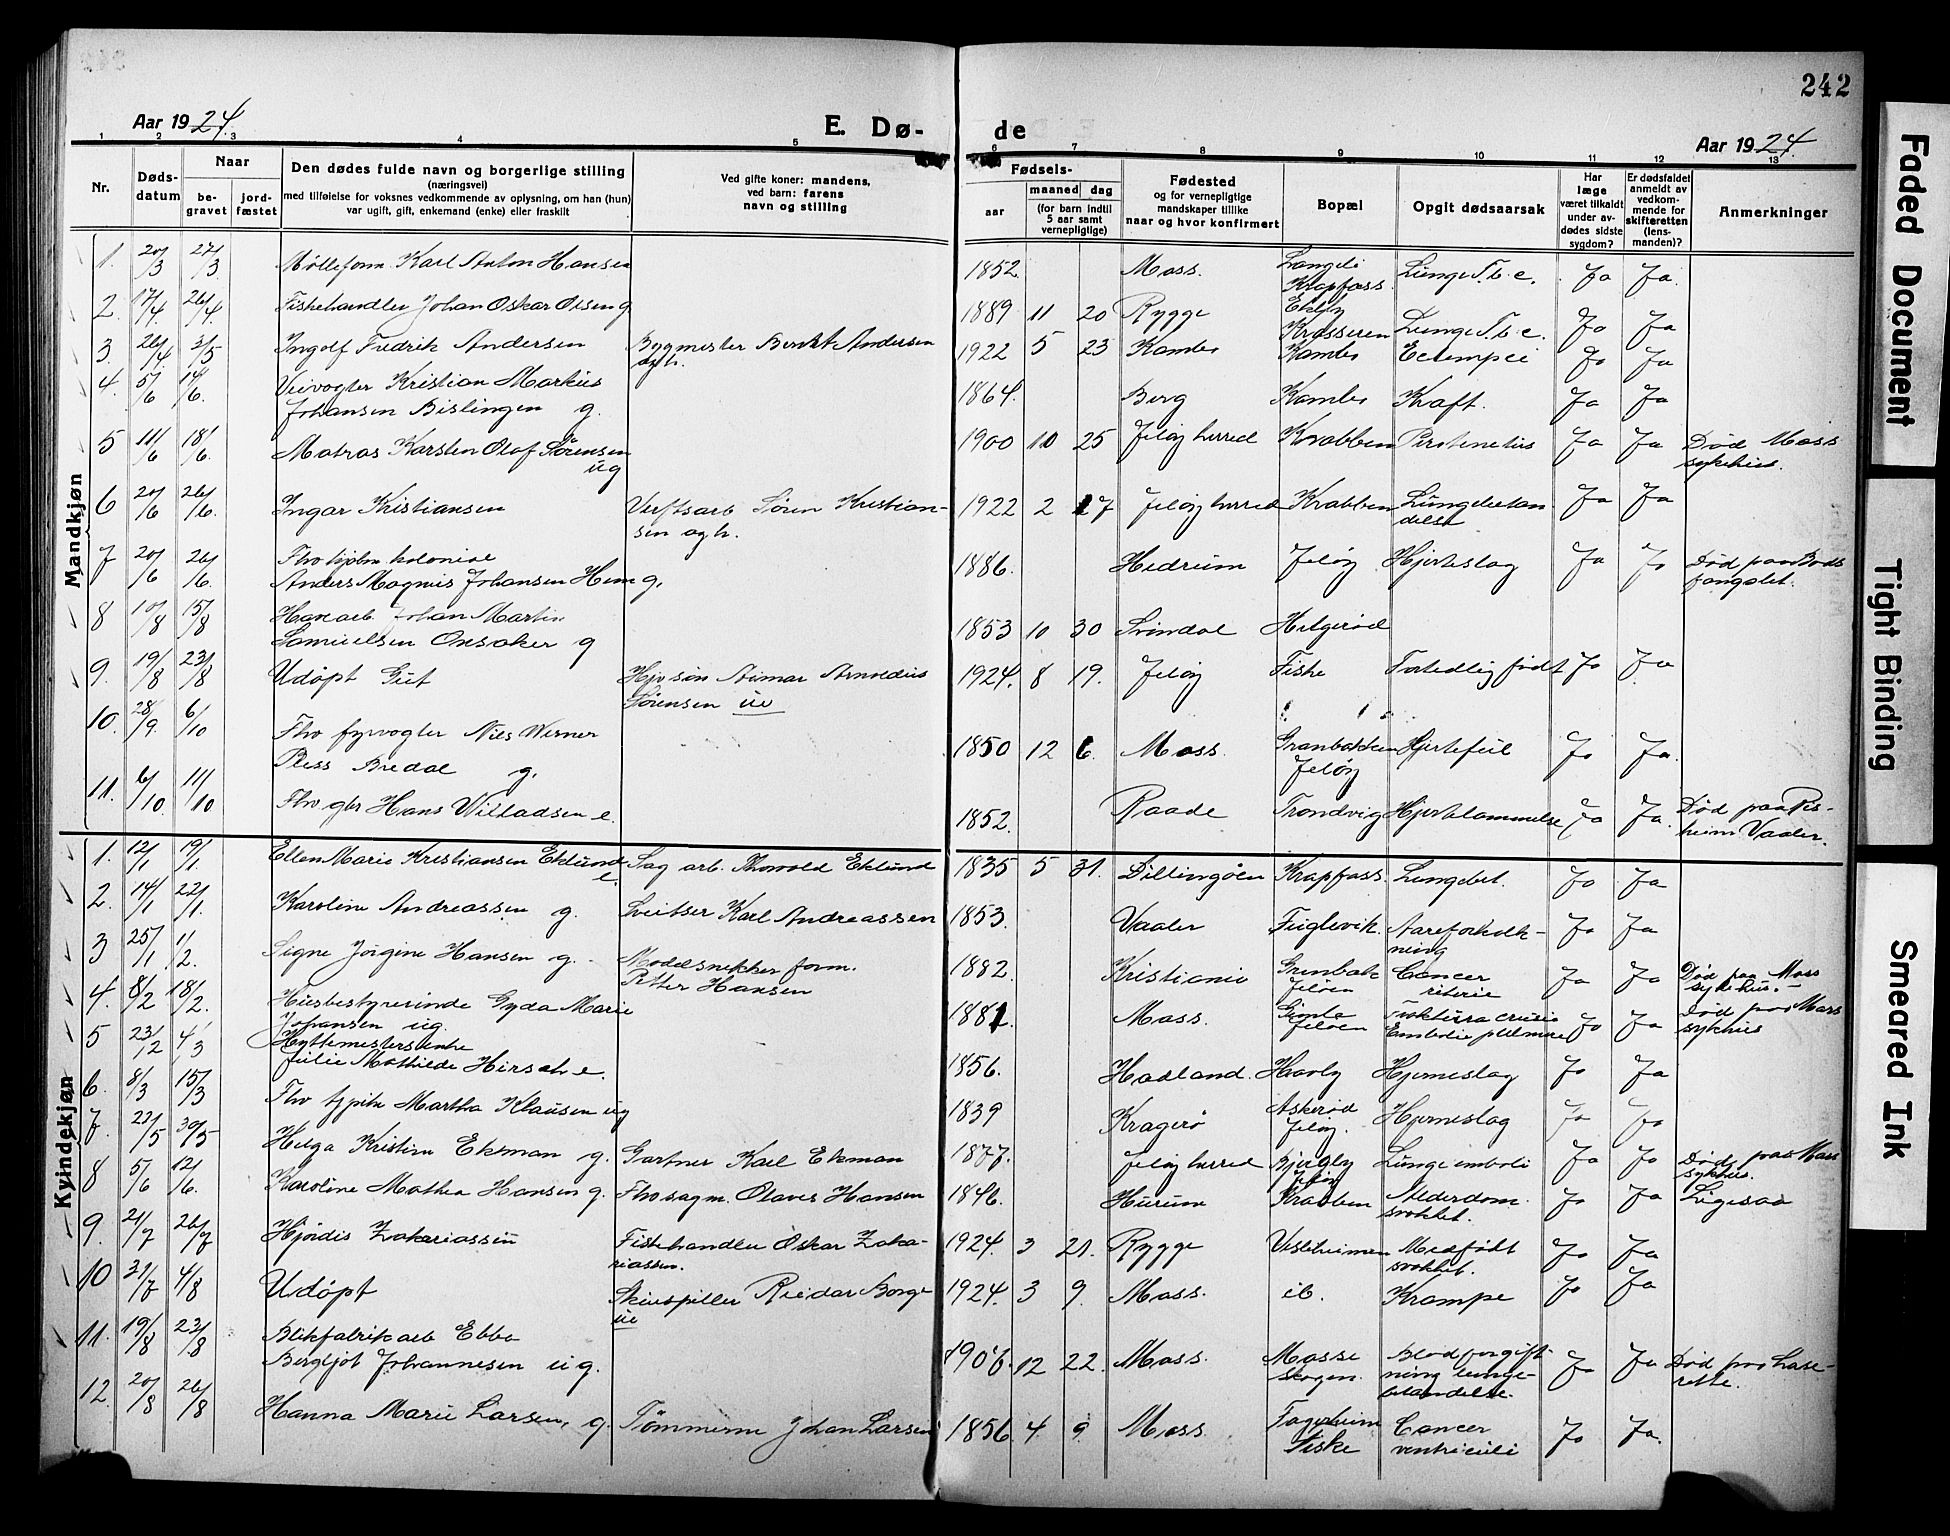 242
Aar 1924.
E. Dø-
de
Aar 1924.
1 2 3 4 5 6 7 8 9 10 11 12 13
Nr.
Døds-
datum
Naar
be-
gravet
jord-
fæstet
Den dødes fulde navn og borgerlige stilling
(næringsvei)
med tilføielse for voksnes vedkommende av oplysning, om han (hun)
var ugift, gift, enkemand (enke) eller fraskilt
Ved gifte koner: mandens,
ved barn: farens
navn og stilling
Fødsels-
aar
maaned
dag
(for barn indtil
5 aar samt
vernepligtige)
Fødested
og for vernepligtige
mandskaper tillike
naar og hvor konfirmert
Bopæl
Opgit dødsaarsak
Har
læge
været tilkaldt
under av-
dødes sidste
sygdom?
Er dødsfaldet
anmeldt av
vedkom-
mende for
skifteretten
(lens-
manden)?
Anmerkninger
Mandkjøn
1. 20/3 27/3 Mølleform. Karl Anton Hansen 1852. Moss. Krapfoss Lunge T.b.c. Ja Ja.
2. 17/4 26/4 Fiskehandler Johan Oskar Olsen g 1889 11 20 Rygge Ekely Krosseren Lunge T.b.c. Ja Ja
3. 26/4 3/5 Ingolf Fredrik Andersen Bygmester Berndt Andersen 1922 5 23 Kambo Kambo Eclampsi Ja Ja
4. 5/6 14/6. Veivogter Kristian Markus
Johansen Bislingen g. 1864. Berg Kambo Kræft. Ja Ja
5 11/6 18/6. Matros Karsten Olaf Sørensen
ug 1900 10 25 Jeløy herred Krabben Ja Ja Død Moss
sykehus.
6 20/6 26/6. Ingar Kristiansen Verftsarb Søren Kristian-
sen og h. 1922 2 17 Jeløy herred Krabben Lungebetæn
delse Ja Ja
7 20/6 26/6. Fhv kjøbm. kolonial
Anders Magnus Johansen Hem g. 1886. Hedrum Jeløy Hjerteslag Ja Ja Død paa Bods
fængslet.
8 10/8 15/8 Havnearb Johan Martin
Samuelsen Onsaker g 1853 10 30 Svindal Helgerød
9. 19/8 23/8 Udøpt Gut Arnoldus
Sørensen ue 1924. 8 19. Jeløy Fiske For tidlig født Ja Ja
10. 28/9. 6/10 Fhv fyrvogter Nils Werner
Pless Bredal g. 1850 12 6. Moss. Granbakken
Jeløy Hjertefeil Ja Ja.
11. 6/10. 11/10 Fhv gbr Hans Willadsen e. 1852. Raade Trondvig Hjertelammelse Ja Ja. Død paa
heim Vaaler.
Kvindekjøn
1. 12/1 19/1 Ellen Marie Kristiansen Eklund
e. Sag arb. Thorvald Eklund 1835 5 31. Dillingøen Krapfoss. Lungebet. Ja Ja
2. 14/1 22/1. Karoline Andreassen g. Sveitser Karl Andreassen 1853. Vaaler Fuglevik. Aareforkalk-
ning Ja Ja
3 25/1 1/2. Signe Jørgine Hansen g. Modelsnekker form.
Petter Hansen 1882. Kristiania Grønbak
Jeløen Cancer
Ja Ja Død paa Moss
sykehus.
4. 8/2 18/2. Husbestyrerinde Gyda Marie
Johansen ug. 1881. Moss. Gimle
Jeløen Fraktura cruris
Embolie pulmonæ Ja Ja Død paa Moss
sykhus
5 23/12 4/3 Hyttemestersenke
Julie Mathilde Hirsch e. 1856. Hadland. Haavly Hjerneslag Ja Ja
6. 8/3 15/3 Fhv Martha Klausen ug 1839 Kragerø Askerød
Jeløy. Hjerneslag Ja Ja
7. 22/5 30/5 Helga Kristine Ekman g. Gartner Karl Ekman 1877. Jeløy herred Bjergly
Jeløy Lunge emboli Ja Ja Død paa Moss
sykhus.
8 5/6 12/6. Karoline Mathea Hansen g. Fhv sagm. Olaves Hansen 1846. Hurum Krabben Alderdom.
svakhet. Ja Ja Ligesaa
9. 21/7 26/7 Hjørdis Zakariassen Fiskehandler Oskar Zaka-
riassen. 1924. 3 21. Rygge Vesleheimen Medfødt
svakhet. Ja Ja
10 31/7 4/8 Udøpt Skuespiller Reidar Borge
ue 1924. 3 9. Moss. ib. Krampe Ja Ja
11. 19/8 23/8 Blikfabrik arb Ebba
Bergljot Johannesen ug. 1906. 12 22. Moss. Mosse
skogen. Blodforgift-
ning lunge-
betændelse. Ja Ja Død paa Lasa-
rette.
12. 20/8 26/8 Hanna Marie Larsen, g. Tømmerm Johan Larsen 1856. 4. 9. Moss. Fagerheim
Fiske Cancer
ventriculi Ja Ja.
Faded Document
Tight Binding
Smeared Ink